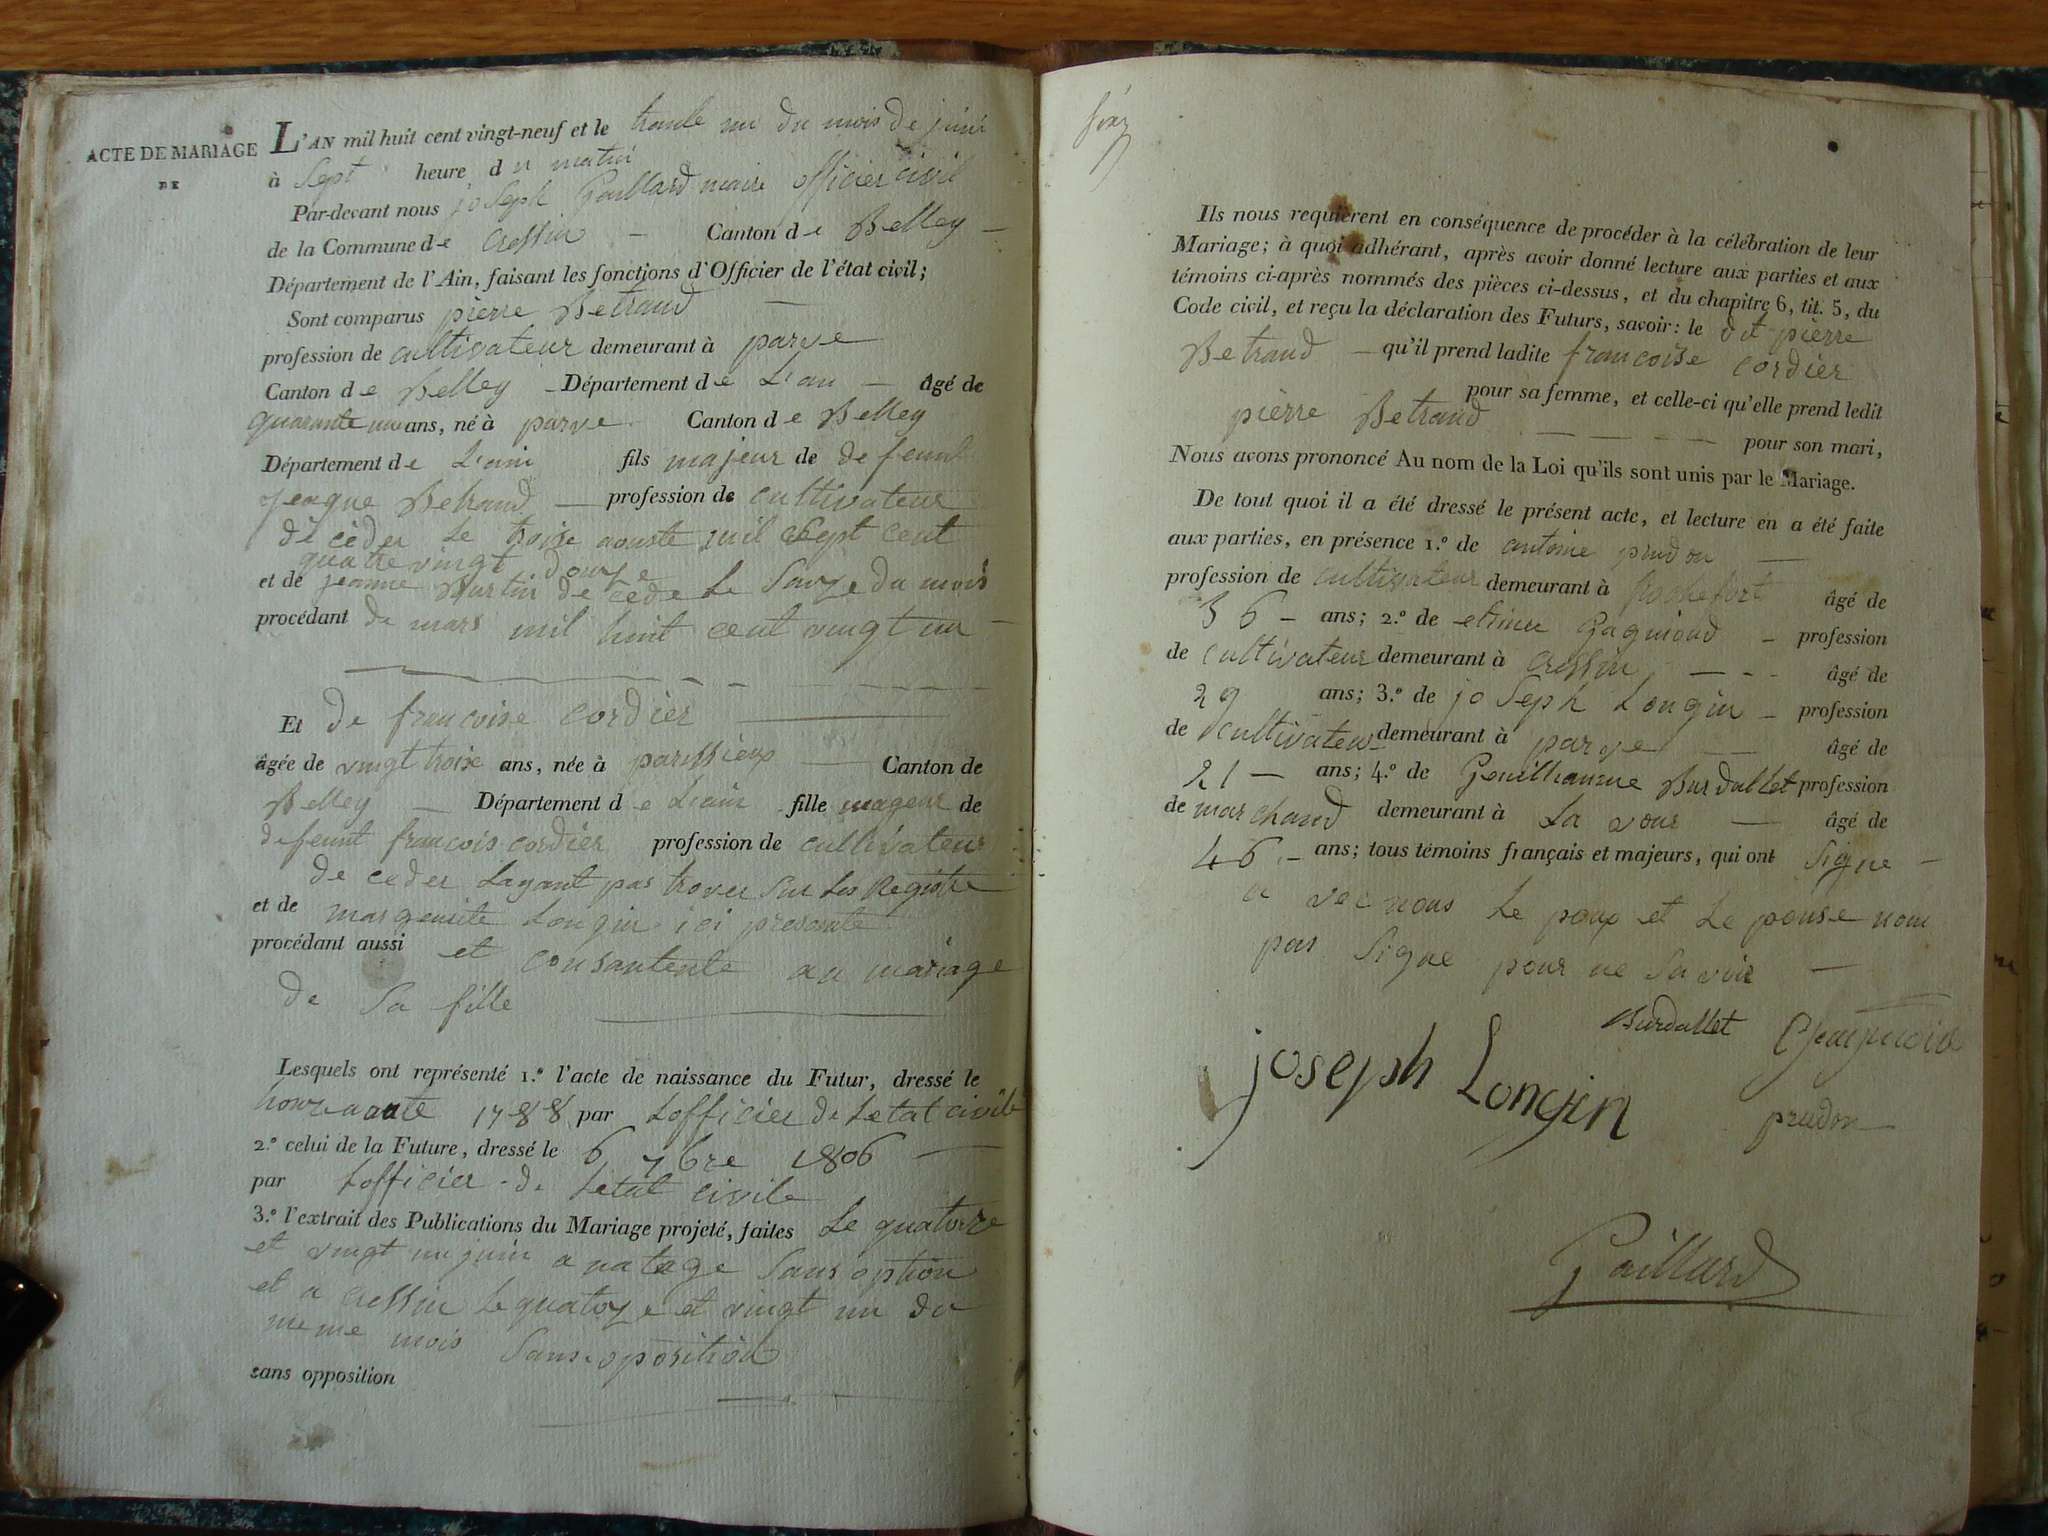 ACTE DE MARIAGE
DE
L'AN mil huit cent vingt-neuf et le trante un du mois de juin
à Sept heure du matin
Par-devant nous joseph Gaillard maire officier civil
de la Commune de Cressin — Canton de Belley —
Département de l'Ain, faisant les fonctions d'Officier de l'état civil;
Sont comparus pierre Betrand —
profession de cultivateur demeurant à parve
Canton de Belley — Département de L'an — âgé de
quarante un ans, né à parve Canton de Belley
Département de L'ain fils majeur de defeunt
Betrand — profession de cultivateur
de céder le troise aouste mil Sept cent
quatre vingt douze
et de jeanne Burtin de cede Le du mois
procédant de mars mil huit cent vingt un —
Et de francoise cordier —
âgée de vingt troise ans, née à parissieux — Canton de
Belley — Département de Lain fille mageur de
defeunt francois cordier profession de cultivateur
de ceder Layant pas trover sur Les Registre
et de margeurite Longin ici presante
procédant aussi et consantente au mariage
de Sa fille
Lesquels ont représenté 1.º l'acte de naissance du Futur, dressé le
aoute 1788 par Lofficier de Letat civile
2.º celui de la Future, dressé le 6 7bre 1806 —
par Lofficier de Letat civile
3.º l'extrait des Publications du Mariage projeté, faites Le quatorze
et vingt un juin a natage Sans option
et a Cressin Le quatorze et vingt un du
meme mois Sans oposition
sans opposition
Ils nous requièrent en conséquence de procéder à la célébration de leur
Mariage; à quoi adhérant, après avoir donné lecture aux parties et aux
témoins ci-après nommés des pièces ci-dessus, et du chapitre 6, tit. 5, du
Code civil, et reçu la déclaration des Futurs, savoir: le dit pierre
Betrand — qu'il prend ladite francoise cordier
pour sa femme, et celle-ci qu'elle prend ledit
pierre Betrand — — — — pour son mari,
Nous avons prononcé Au nom de la Loi qu'ils sont unis par le Mariage.
De tout quoi il a été dressé le présent acte, et lecture en a été faite
aux parties, en présence 1.º de antoine prudon —
profession de cultivateur demeurant à Rochefort âgé de
36 — ans; 2.º de etinne Gagnioud — profession
de cultivateur demeurant à Cressin — - - âgé de
29 ans; 3.º de joSeph Longin — profession
de cultivateur demeurant à parve — — âgé de
21 — ans; 4.º de Gouilliaume Burdallet profession
de marchand demeurant à La vour — âgé de
46 — ans; tous témoins français et majeurs, qui ont Signe —
a vec nous Le poux et Le pouse nom
pas Signe pour ne Savoir —
Burdallet
joseph Longin
prudon
Gaillard